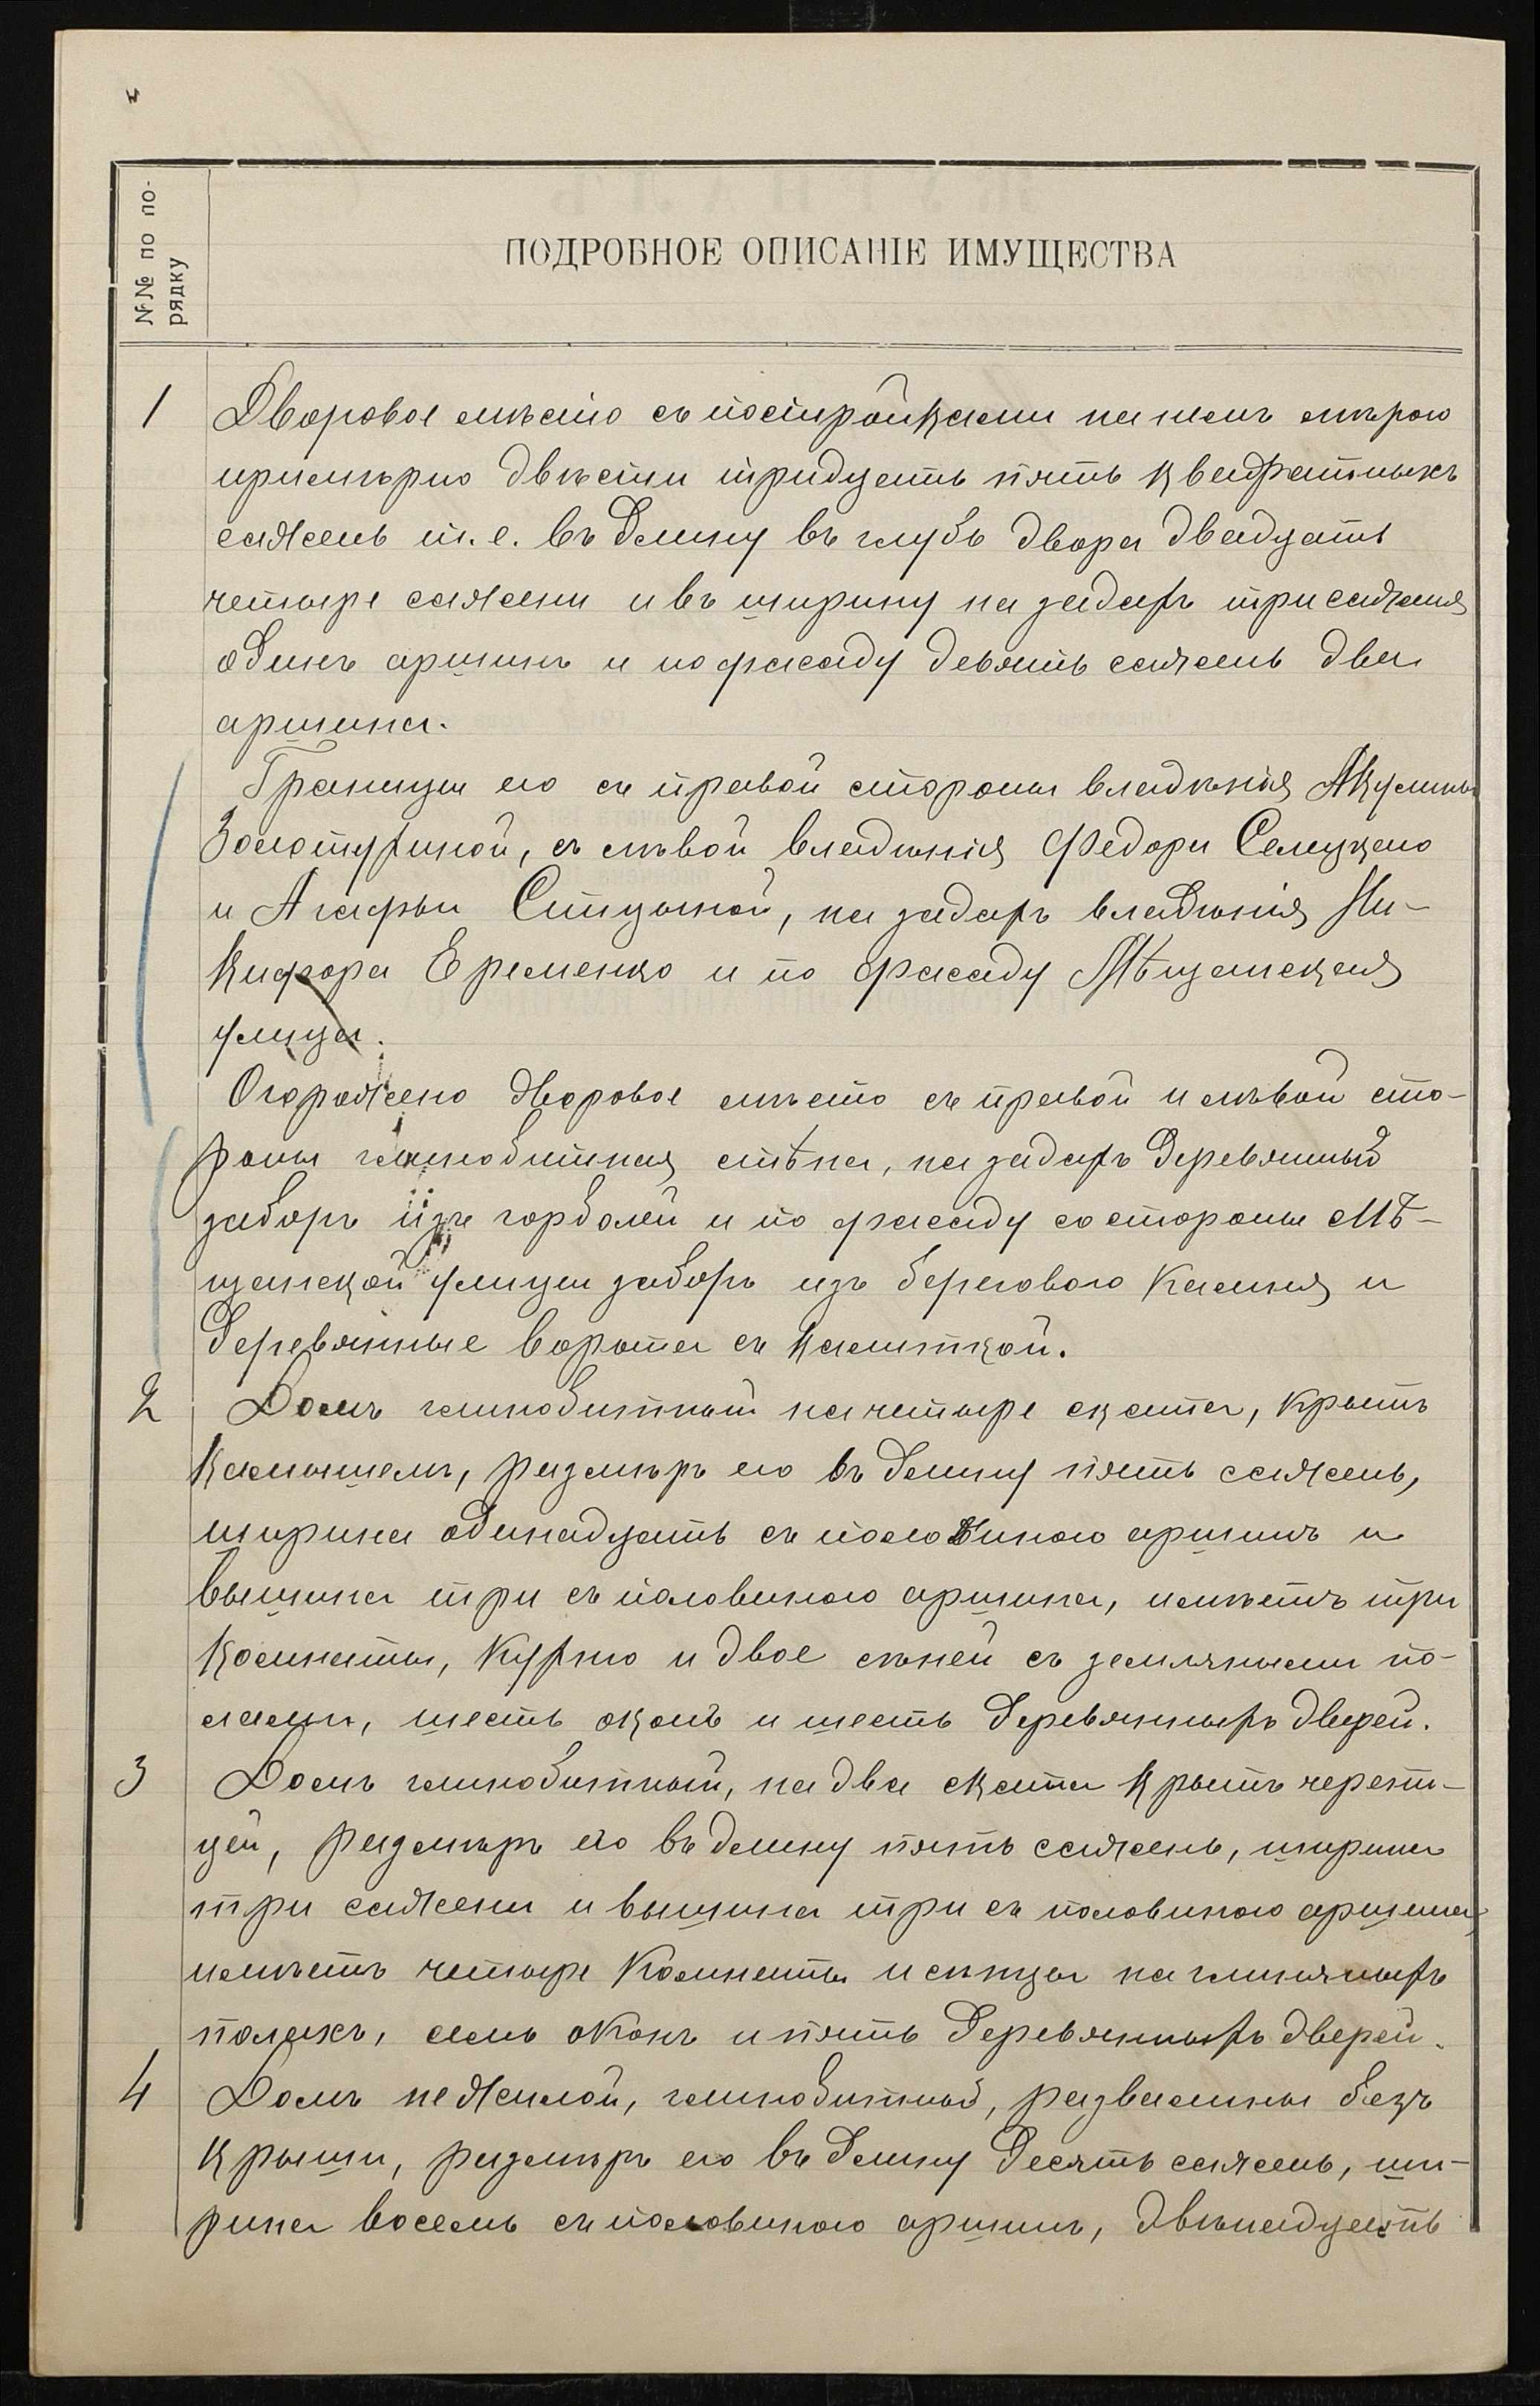 №№ по по-
рядку
ПОДРОБНОЕ ОПИСАНІЕ ИМУЩЕСТВА
1
Дворовое мѣсто съ постройками на немъ мѣрою
примѣрно двѣсти тридцать пять квадратныхъ
сажень т. е. въ длину въ глубь двора двадцать
четыре сажени и въ ширину на задахъ три сажня
одинъ аршинъ и по фасаду девять сажень два
аршина.
Границы его съ правой стороны владѣнія Акулины
Золотухиной, съ лѣвой владѣнія Федора
и Агафьи на задахъ владѣнія Ни-
кифора Еременко и по фасаду Мѣщанская
улица.
Огорожено дворовое мѣсто съ правой и лѣвой сто-
роны глинобитная стѣна, на задахъ деревянный
заборъ изъ горболей и по фасаду со стороны Мѣ-
щанской улицы заборъ изъ берегового камня и
деревянные ворота съ калиткой.
2
Домъ глинобитный на четыре ската, крытъ
камышемъ, размѣръ его въ длину пять сажень,
ширина одинадцать съ половиною аршинъ и
вышина три съ половиною аршина, имѣетъ три
комнаты, кухню и двое сѣней съ земляными по-
лами, шесть оконъ и шесть деревянныхъ дверей.
3
Домъ глинобитный, на два ската крытъ черепи-
цей, размѣръ его въ длину пять сажень, ширина
три сажени и вышина три съ половиною аршина,
имѣетъ четыре комнаты и сѣнцы на глиняныхъ
полахъ, семь оконъ и пять деревянныхъ дверей.
4
Домъ не жилой, глинобитный, развалины безъ
крыши, размѣръ его въ длину десять сажень, ши-
рина восемь съ половиною аршинъ, двѣнадцать